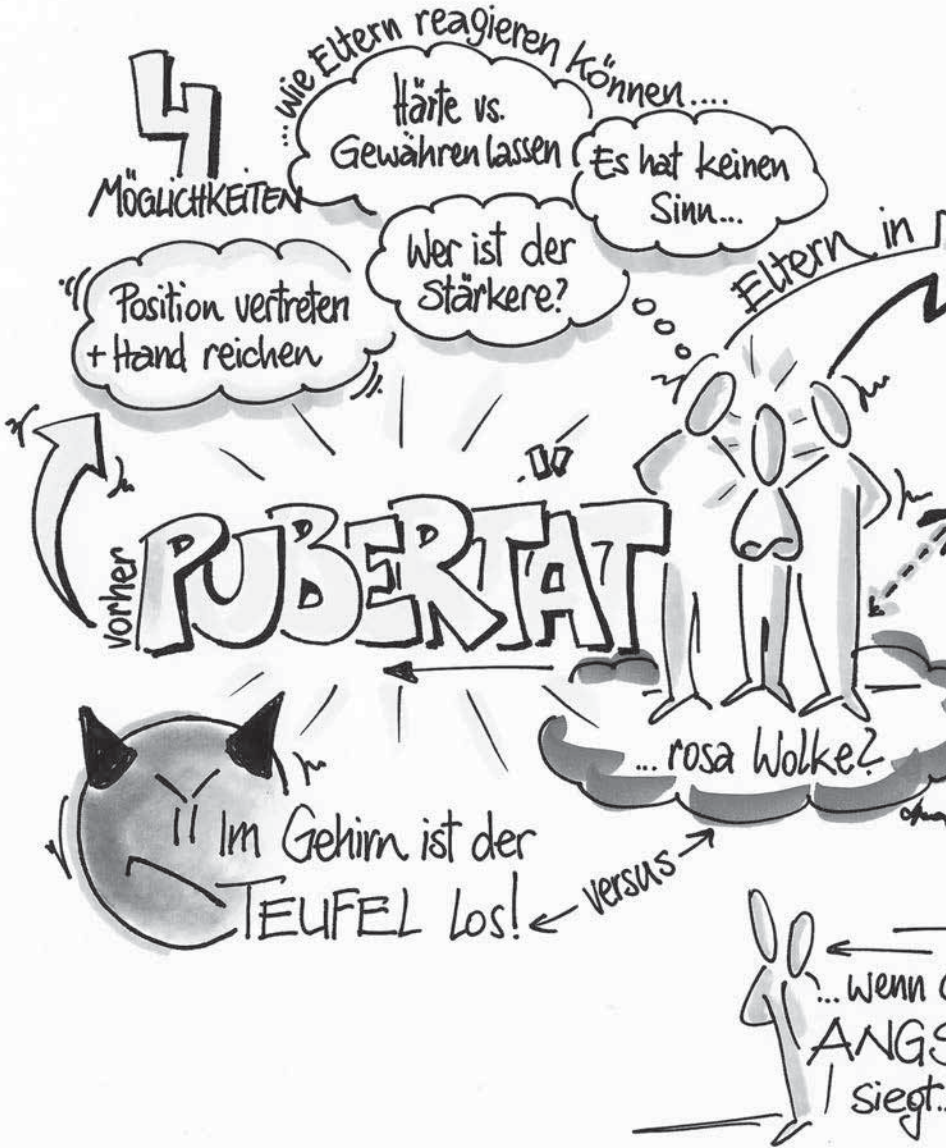 4
MÖGLICHKEITEN
...wie Eltern reagieren können....
Härte vs.
Gewähren lassen
Es hat keinen
Sinn...
Wer ist der
Stärkere?
Position vertreten
+ Hand reichen
Eltern in
vorher
PUBERTÄT
... rosa Wolke?
Im Gehirn ist der
TEUFEL los!
versus
... wenn
ANGS
siegt..